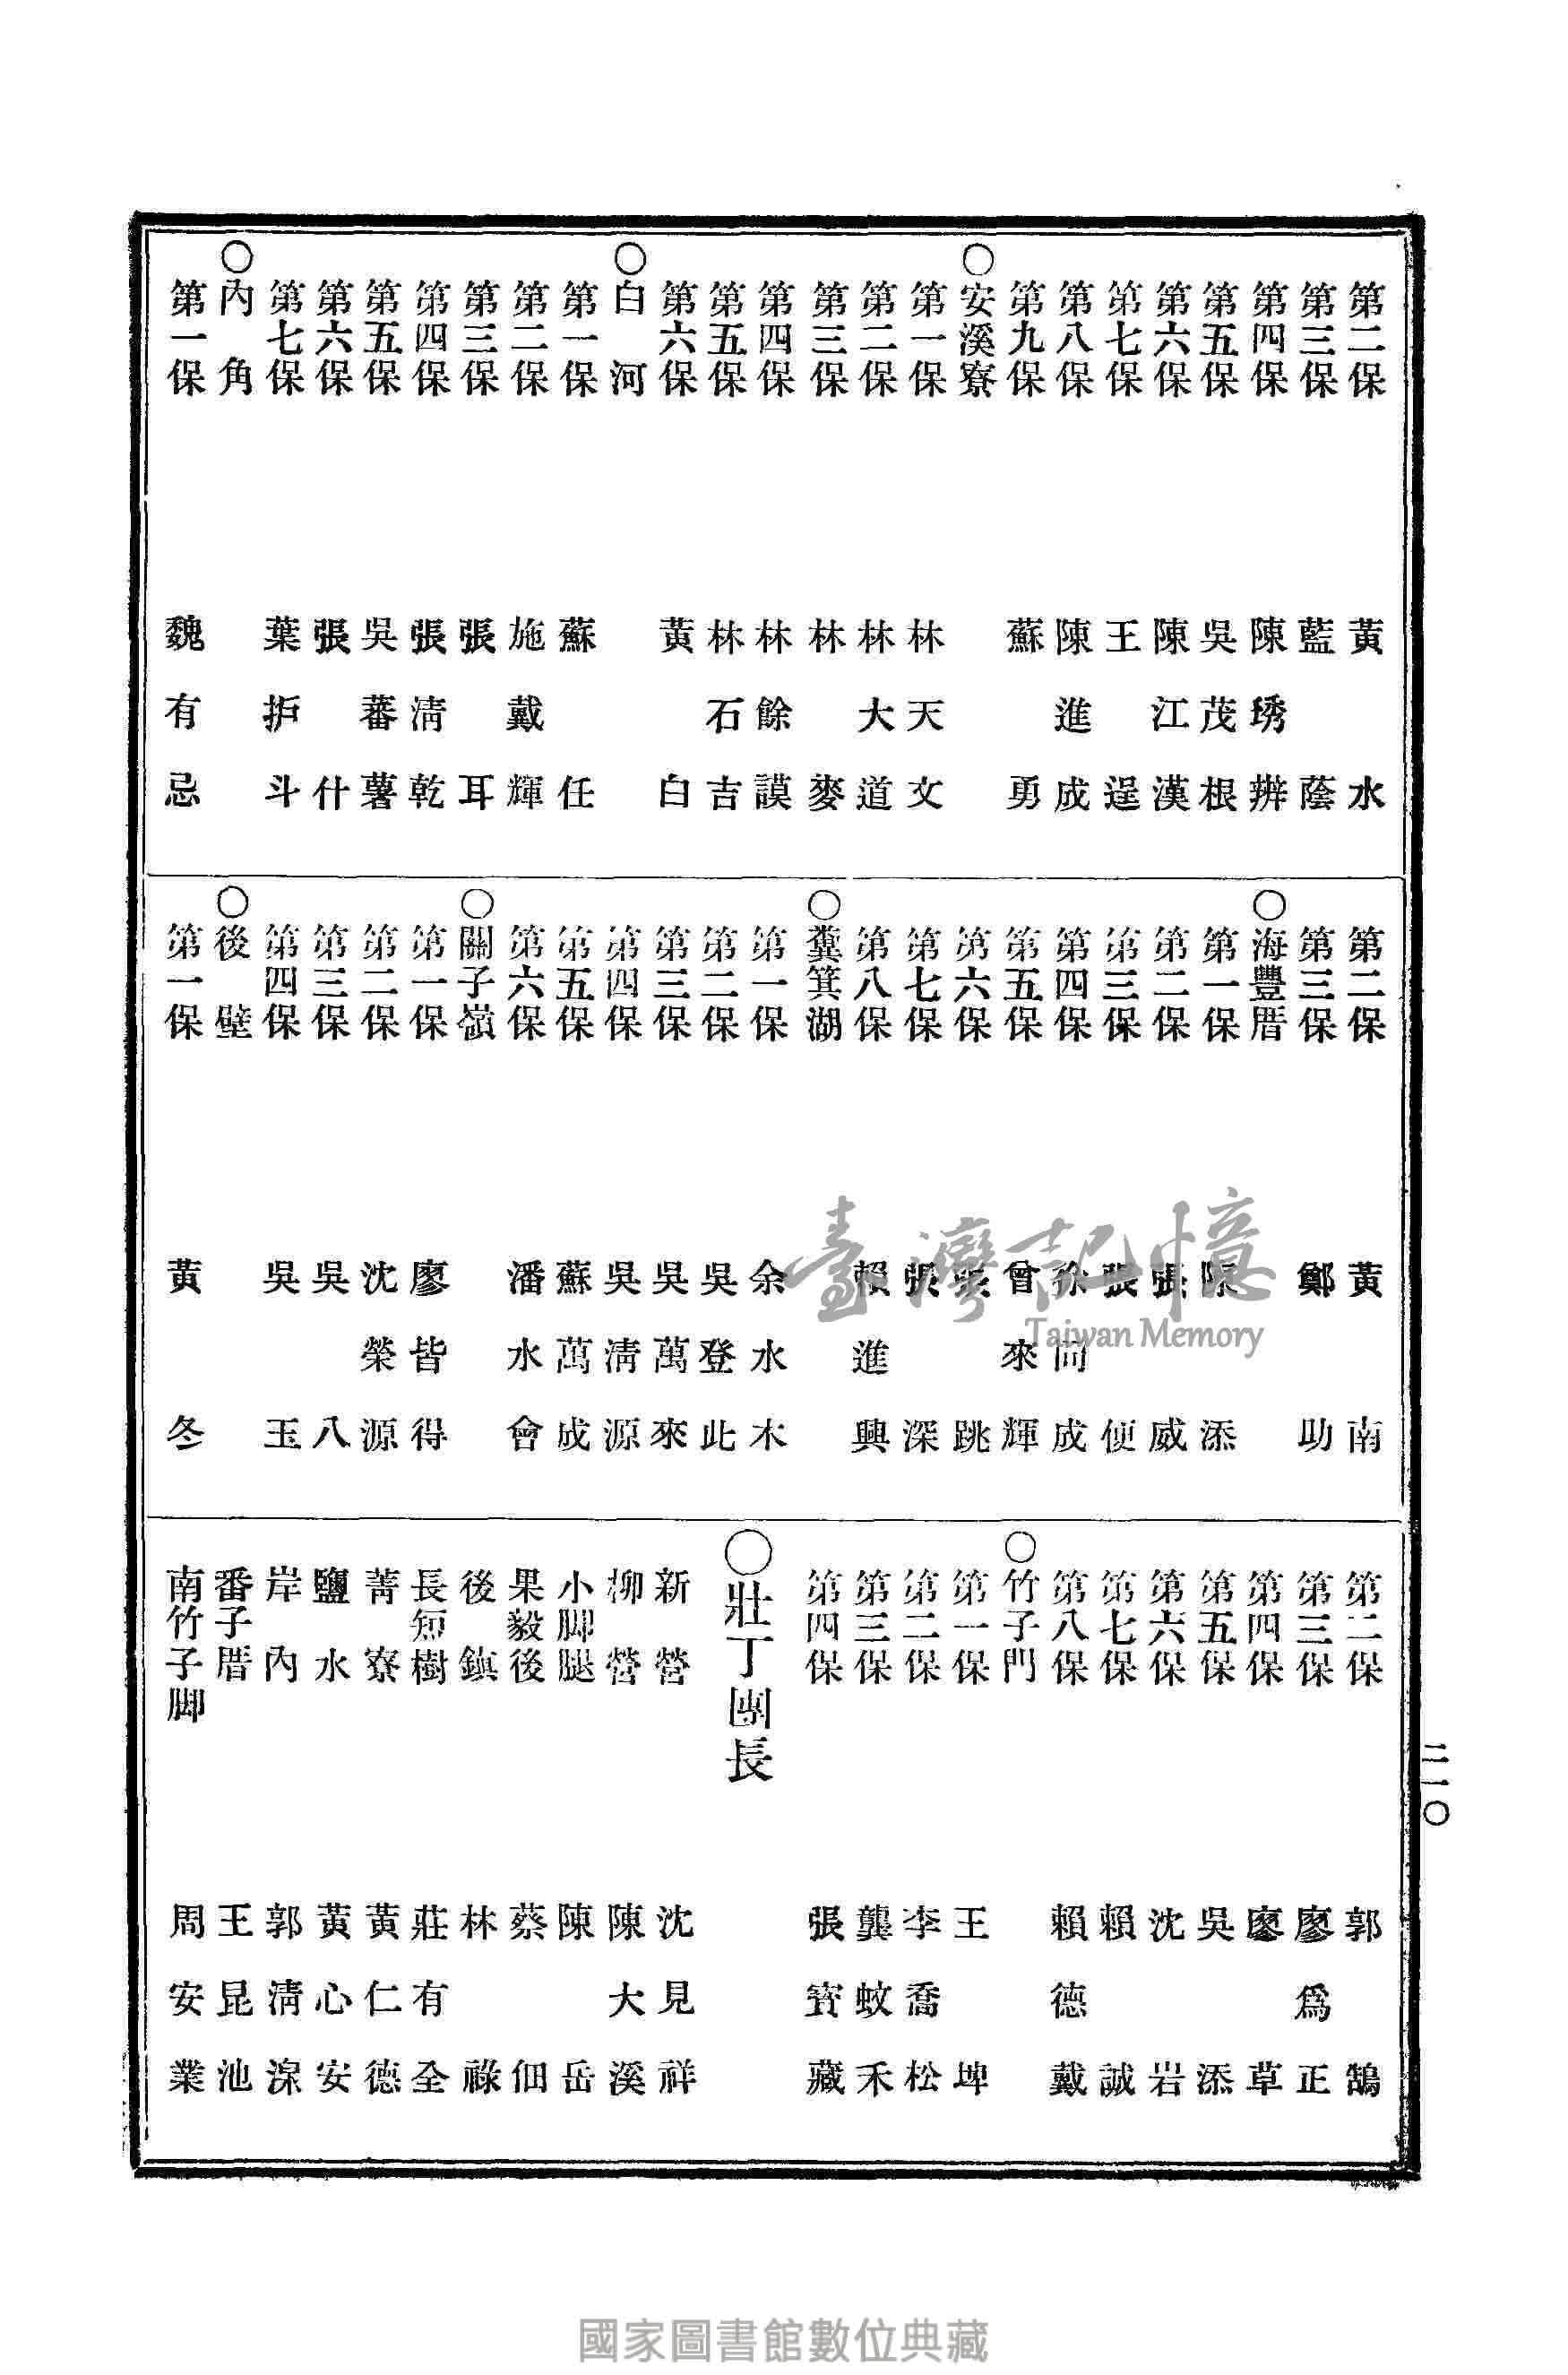 第二保 黃水
第三保 藍蔭
第四保 陳琇辦
第五保 吳茂根
第六保 陳江漢
第七保 王逞
第八保 陳進成
第九保 蘇勇
○安溪寮
第一保 林天文
第二保 林大道
第三保 林麥
第四保 林餘謨
第五保 林石吉
第六保 黃白
○白河
第一保 蘇任
第二保 施戴輝
第三保 張耳
第四保 張淸乾
第五保 吳蕃薯
第六保 張什
第七保 葉抲斗
○內角
第一保 魏有忌
第二保 黃南
第三保 鄭助
○海豐厝
第一保 陳添
第二保 張威
第三保 張便
第四保 徐同成
第五保 曾來輝
第六保 張跳
第七保 張深
第八保 賴進興
○糞箕湖
第一保 余水木
第二保 吳登此
第三保 吳萬來
第四保 吳淸源
第五保 蘇萬成
第六保 潘水會
○關子嶺
第一保 廖皆得
第二保 沈榮源
第三保 吳八
第四保 吳玉
○後壁
第一保 黃冬
第二保 郭鵠
第三保 廖爲正
第四保 廖草
第五保 吳添
第六保 沈岩
第七保 賴誠
第八保 賴德戴
○竹子門
第一保 王埤
第二保 李喬松
第三保 龔蚊禾
第四保 張寶藏
○壯丁團長
新營 沈見祥
柳營 陳大溪
小脚腿 陳岳
果毅後 蔡佃
後鎭 林祿
長短樹 莊有全
菁寮 黃仁德
鹽水 黃心安
岸內 郭淸濱
番子厝 王昆池
南竹子脚 周安業
二一〇
臺灣記憶
Taiwan Memory
國家圖書館數位典藏